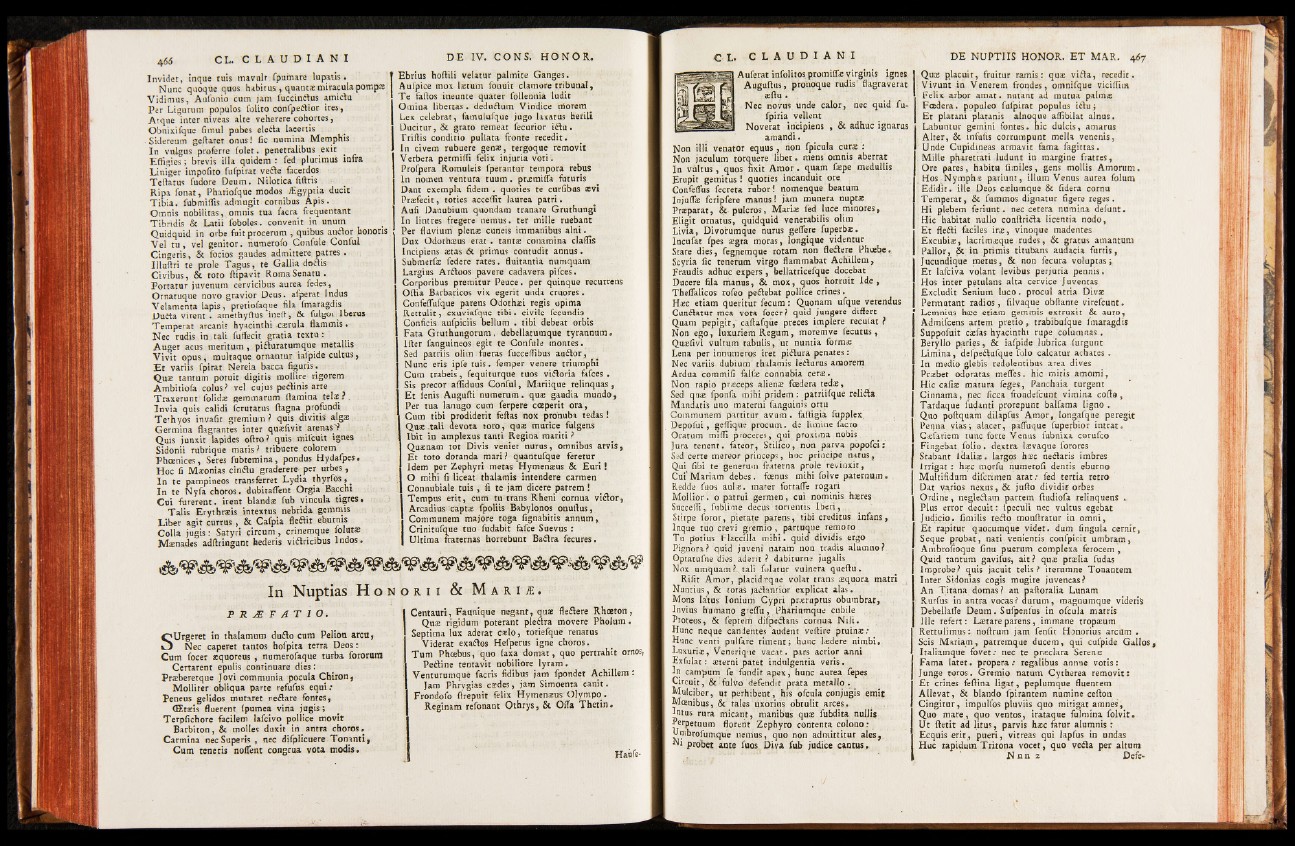 466 CL. CLAUDIANI
Invidet, inque tuis mavult spumare lupatis.
Nunc quoque quos habitus, quantæ miracula pompæ
Vidimus, Ausonio cum jam succinctus amictu
Per Ligurum populos solito conspectior ires,
Atque inter niveas alte veherere cohortes,
Obnixisque simul pubes electa lacertis
Sidereum gestaret onus! sic numina Memphis
In vulgus proferre solet. penetralibus exit
Effigies; brevis illa quidem: sed plurimus infra
Liniger imposito suspirat vecte sacerdos
Testatus sudore Deum. Nilotica sistris
Ripa sonat, Phariosque modos Ægyptia ducit
Tibia. submissis admugit cornibus Apis.
Omnis nobilitas, omnis tua sacra frequentant
Tibridis & Latii soboles. convenit in unum
Quidquid in orbe fuit procerum, quibus auctor honoris
Vel tu, vel genitor. numeroso Consule Consul
Cingeris, & socios gaudes admittere patres.
Illustri te prole Tagus, te Gallia doctis
Civibus, & toto stipavit Roma Senatu.
Portatur juvenum cervicibus aurea sedes,
Ornatuque novo gravior Deus. asperat Indus
Velamenta lapis, pretiosaque fila smaragdis
Ducta virent. amethystus inest, & fulgor Iberus
Temperat arcanis hyacinthi cærula flammis.
Nec rudis in tali suffecit gratia textu:
Auget acus meritum, picturatumque metallis
Vivit opus, multaque ornantur iaspide cultus,
Et variis spirat Nereia bacca figuris.
Quæ tantum potuit digitis mollire rigorem
Ambitiosa colus? vel cujus pectinis arte
Traxerunt solidæ gemmarum stamina telæ?
Invia quis calidi scrutatus stagna profundi
Tethyos invasit gremium? quis divitis algæ
Germina flagrantes inter quæsivit arenas?
Quis junxit lapides ostro? quis miscuit ignes
Sidonii rubrique maris? tribuere colorem
Phœnices, Seres subtemina, pondus Hydaspes.
Hoc si Mæonias cinctu graderere per urbes,
In te pampineos transferret Lydia thyrsos,
In te Nysa choros. dubitassent Orgia Bacchi
Cui furerent. irent blandæ sub vincula tigres.
Talis Erythræis intextus nebrida gemmis
Liber agit currus, & Caspia flectit eburnis
Colla jugis: Satyri circum, crinemque solutæ
Mænades adstringunt hederis victricibus Indos.
DE IV. CONS. HONOR.
Ebrius hostili velatur palmite Ganges.
Auspice mox lætum sonuit clamore tribunal,
Te fastos ineunte quater sollennia ludit
Omina libertas. deductum Vindice morem
Lex celebrat, famulusque jugo laxatus herili
Ducitur, & grato remeat securior ictu.
Tristis conditio pulsata fronte recedit.
In civem rubuere genæ, tergoque removit
Verbera permissi felix injuria voti.
Prospera Romuleis sperantur tempora rebus
In nomen ventura tuum. præmissa futuris
Dant exempla fidem. quoties te cursibus ævi
Præfecit, toties accessit laurea patri.
Ausi Danubium quondam tranare Gruthungi
In lintres fregere nemus. ter mille ruebant
Per fluvium plenæ cuneis immanibus alni.
Dux Odothæus erat. tantæ conamina classis
Incipiens ætas & primus contudit annus.
Submersæ sedere rates. fluitantia numquam
Largius Arctoos pavere cadavera pisces.
Corporibus premitur Peuce. per quinque recurrens
Ostia Barbaricos vix egerit unda cruores.
Confessusque parens Odothæi regis opima
Rettulit, exuviasque tibi. civile secundis
Conficis auspiciis bellum. tibi debeat orbis
Fata Gruthungorum, debellatumque tyrannum.
Ister sanguineos egit te Consule montes.
Sed patriis olim fueras successibus auctor,
Nunc eris ipse tuis. semper venere triumphi
Cum trabeis, sequiturque tuos victoria fasces.
Sis precor assiduus Consul, Mariique relinquas,
Et senis Augusti numerum. quæ gaudia mundo,
Per tua lanugo cum serpere cœperit ora,
Cum tibi prodiderit festas nox pronuba tedas!
Quæ tali devota toro, quæ murice fulgens
Ibit in amplexus tanti Regina mariti?
Quænam tot Divis veniet nurus, omnibus arvis,
Et toto doranda mari? quantusque feretur
Idem per Zephyri metas Hymenæus & Euri!
O mihi si liceat thalamis intendere carmen
Connubiale tuis, si te jam dicere patrem!
Tempus erit, cum tu trans Rheni cornua victor,
Arcadius captæ spoliis Babylonos onustus,
Communem majore toga signabitis annum,
Crinitusque tuo sudabit fasce Suevus:
Ultima fraternas horrebunt Bactra secures.
In Nuptias HONORII & MARIÆ.
PRÆFATIO.
SUrgeret in thalamum ducto cum Pelion arcu,
Nec caperet tantos hospita terra Deos:
Cum socer æquoreus, numerosaque turba sororum
Certarent epulis continuare dies:
Præberetque Jovi communia pocula Chiron,
Molliter obliqua parte refusus equi:
Peneus gelidos mutaret nectare fontes,
Œtæis fluerent spumea vina jugis;
Terpsichore facilem lascivo pollice movit
Barbiton, & molles duxit in antra choros.
Carmina nec Superis, nec displicuere Tonanti,
Cum teneris nossent congrua vota modis.
Centauri, Faunique negant, quæ flectere Rhœton,
Quæ rigidum poterant plectra movere Pholum.
Septima lux aderat cælo, totiesque renatus
Viderat exactos Hesperus igne choros.
Tum Phœbus, quo saxa domat, quo pertrahit ornos,
Pectine tentavit nobiliore lyram.
Venturumque sacris fidibus jam spondet Achillem:
Jam Phrygias cædes, jam Simoenta canit.
Frondoso strepuit felix Hymenæus Olympo.
Reginam resonant Othrys, & Ossa Thetin.
Hause-
CL. CLAUDIANI
HAuserat insolitos promissæ virginis ignes
Augustus, pronoque rudis flagraverat
æstu.
Nec novus unde calor, nec quid suspiria
vellent
Noverat incipiens, & adhuc ignarus
amandi.
Non illi venator equus, non spicula curæ:
Non jaculum torquere libet. mens omnis aberrat
In vultus, quos fixit Amor. quam sæpe medullis
Erupit gemitus! quoties incanduit ore
Confessus secreta rubor! nomenque beatum
Injussæ scripsere manus! jam munera nuptæ
Præparat, & pulcros, Mariæ sed luce minores,
Eligit ornatus, quidquid venerabilis olim
Livia, Divorumque nurus gessere superbæ.
Incusat spes ægra moras, longique videntur
Stare dies, segnemque rotam non flectere Phœbe.
Scyria sic tenerum virgo flammabat Achillem,
Fraudis adhuc expers, bellatricesque docebat
Ducere fila manus, &, mox, quos horruit Ide,
Thessalicos roseo pectebat pollice crines.
Hæc etiam queritur secum: Quonam usque verendus
Cunctatur mea vota socer? quid jungere differt
Quam pepigit, castasque preces implere recusat?
Non ego, luxuriem Regum, moremve secutus,
Quæsivi vultum tabulis, ut nuntia formæ
Lena per innumeros iret pictura penates:
Nec variis dubium thalamis lecturus amorem
Ardua commisi falsæ connubia ceræ.
Non rapio præceps alienæ fœdera tedæ,
Sed quæ sponsa mihi pridem: patriisque relicta
Mandatis uno materni sanguinis ortu
Communem partitur avum. fastigia supplex
Deposui, gessique procum. de limine sacro
Oratum missi proceres, qui proxima nobis
Jura tenent. fateor, Stilico, non parva poposci:
Sed certe mereor princeps, hoc principe natus,
Qui sibi te generum fraterna prole revinxit,
Cui Mariam debes. fœnus mihi solve paternum.
Redde suos aulæ. mater fortasse rogari
Mollior. o patrui germen, cui nominis hæres
Successi, sublime decus torrentis Iberi,
Stirpe soror, pietate parens, tibi creditus infans,
Inque tuo crevi gremio, partuque remoto
Tu potius Flaccilla mihi. quid dividis ergo
Pignora? quid juveni natam non tradis alumno?
Optatusne dies aderit? dabiturne jugalis
Nox umquam? tali solatur vulnera questu.
Risit Amor, placidæque volat trans æquora matri
Nuntius, & totas jactantior explicat alas.
Mons latus Ionium Cypri præruptus obumbrat,
Invius humano gressu, Phariumque cubile
Proteos, & septem dispectans cornua Nili.
Hunc neque candentes audent vestire pruinæ:
Hunc venti pulsare timent; hunc lædere nimbi.
Luxuriæ, Venerique vacat. pars acrior anni
Exsulat: æterni patet indulgentia veris.
In campum se fundit apex, hunc aurea sepes
Circuit, & fulvo defendit prata metallo.
Mulciber, ut perhibent, his oscula conjugis emit
Mœnibus, & tales uxorius obtulit arces.
Intus rura micant, manibus quæ subdita nullis
Perpetuum florent Zephyro contenta colono:
Umbrosumque nemus, quo non admittitur ales,
Ni probet ante suos Diva sub judice cantus.
DE NUPTIIS HONOR. ET MAR. 467
Quæ placuit, fruitur ramis: quæ victa, recedit.
Vivunt in Venerem frondes, omnisque vicissim
Felix arbor amat. nutant ad mutua palmæ
Fœdera. populeo suspirat populus ictu;
Et platani platanis alnoque assibilat alnus.
Labuntur gemini fontes. hic dulcis, amarus
Alter, & infusis corrumpunt mella venenis,
Unde Cupidineas armavit fama sagittas.
Mille pharetrati ludunt in margine fratres,
Ore pares, habitu similes, gens mollis Amorum.
Hos Nymphæ pariunt, illum Venus aurea solum
Edidit. ille Deos cælumque & sidera cornu
Temperat, & summos dignatur figere reges.
Hi plebem feriunt. nec cetera numina desunt.
Hic habitat nullo constricta licentia nodo,
Et flecti faciles iræ, vinoque madentes
Excubiæ, lacrimæque rudes, & gratus amantum
Pallor, & in primis titubans audacia furtis,
Jucundique metus, & non secura voluptas;
Et lasciva volant levibus perjuria pennis.
Hos inter petulans alta cervice Juventas
Excludit Senium luco. procul atria Divæ
Permutant radios, silvaque obstante virescunt.
Lemnius hæc etiam gemmis extruxit & auro,
Admiscens artem pretio, trabibusque smaragdis
Supposuit cæsas hyacinthi rupe columnas.
Beryllo paries, & iaspide lubrica surgunt
Limina, despectusque solo calcatur achates.
In medio glebis redolentibus area dives
Præbet odoratas messes. hic mitis amomi,
Hic casiæ matura seges, Panchaia turgent
Cinnama, nec sicca frondescunt vimina costo,
Tardaque sudanti prorepunt balsama ligno.
Quo postquam dilapsus Amor, longasque peregit
Penna vias; alacer, passuque superbior intrat.
Cæsariem tunc forte Venus subnixa corusco
Fingebat solio. dextra lævaque sorores
Stabant Idaliæ. largos hæc nectaris imbres
Irrigat: hæc morsu numerosi dentis eburno
Multifidum discrimen arat: sed tertia retro
Dat varios nexus, & justo dividit orbes
Ordine, neglectam partem studiosa relinquens.
Plus error decuit: speculi nec vultus egebat
Judicio. similis tecto monstratur in omni,
Et rapitur quocumque videt. dum singula cernit,
Seque probat, nati venientis conspicit umbram,
Ambrosioque sinu puerum complexa ferocem,
Quid tantum gavisus, ait? quæ prælia sudas
Improbe? quis jacuit telis? iterumne Tonantem
Inter Sidonias cogis mugire juvencas?
An Titana domas? an pastoralia Lunam
Rursus in antra vocas? durum, magnumque videris
Debellasse Deum. Suspensus in oscula matris
Ille refert: Lætare parens, immane tropæum
Rettulimus: nostrum jam sensit Honorius arcum.
Scis Mariam, patremque ducem, qui cuspide Gallos,
Italiamque fovet: nec te præclara Serenæ
Fama latet. propera: regalibus annue votis:
Junge toros. Gremio natum Cytherea removit:
Et crines festina ligat, peplumque fluentem
Allevat, & blando spirantem numine ceston
Cingitur, impulsos pluviis quo mitigat amnes,
Quo mare, quo ventos, irataque fulmina solvit.
Ut stetit ad litus, parvis hæc fatur alumnis:
Ecquis erit, pueri, vitreas qui lapsus in undas
Huc rapidum Tritona vocet, quo vecta per altum
Nnn 2 Defe-